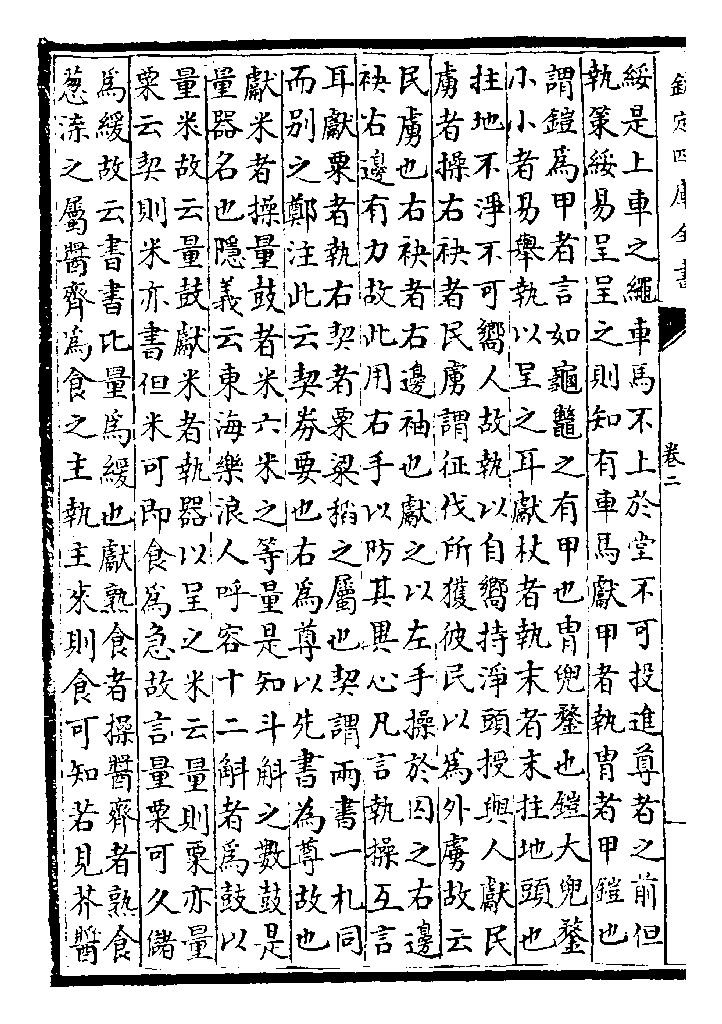 欽定四庫全書
卷二
綏是上車之繩車馬不上於堂不可投進尊者之前但
執策綏易呈呈之則知有車馬獻甲者執冑者甲鎧也
謂鎧為甲者言如龜鼈之有甲也冑兜鍪也鎧大兜鍪
小小者易舉執以呈之耳獻杖者執末者末拄地頭也
拄地不淨不可嚮人故執以自嚮持淨頭授與人獻民
虜者操右袂者民虜謂征伐所獲彼民以為外虜故云
民虜也右袂者右邊袖也獻之以左手操於囚之右邊
袂右邊有力故此用右手以防其異心凡言執操互言
耳獻粟者執右契者粟粱稻之屬也契謂兩書一札同
而別之鄭注此云契券要也右為尊以先書為尊故也
獻米者操量鼓者米六米之等量是知斗斛之數鼓是
量器名也隱義云東海樂浪人呼容十二斛者為鼓以
量米故云量鼓獻米者執器以呈之米云量則粟亦量
粟云契則米亦書但米可即食為急故言量粟可久儲
為緩故云書書比量為緩也獻熟食者操醬齊者熟食
葱渫之屬醬齊為食之主執主來則食可知若見芥醬